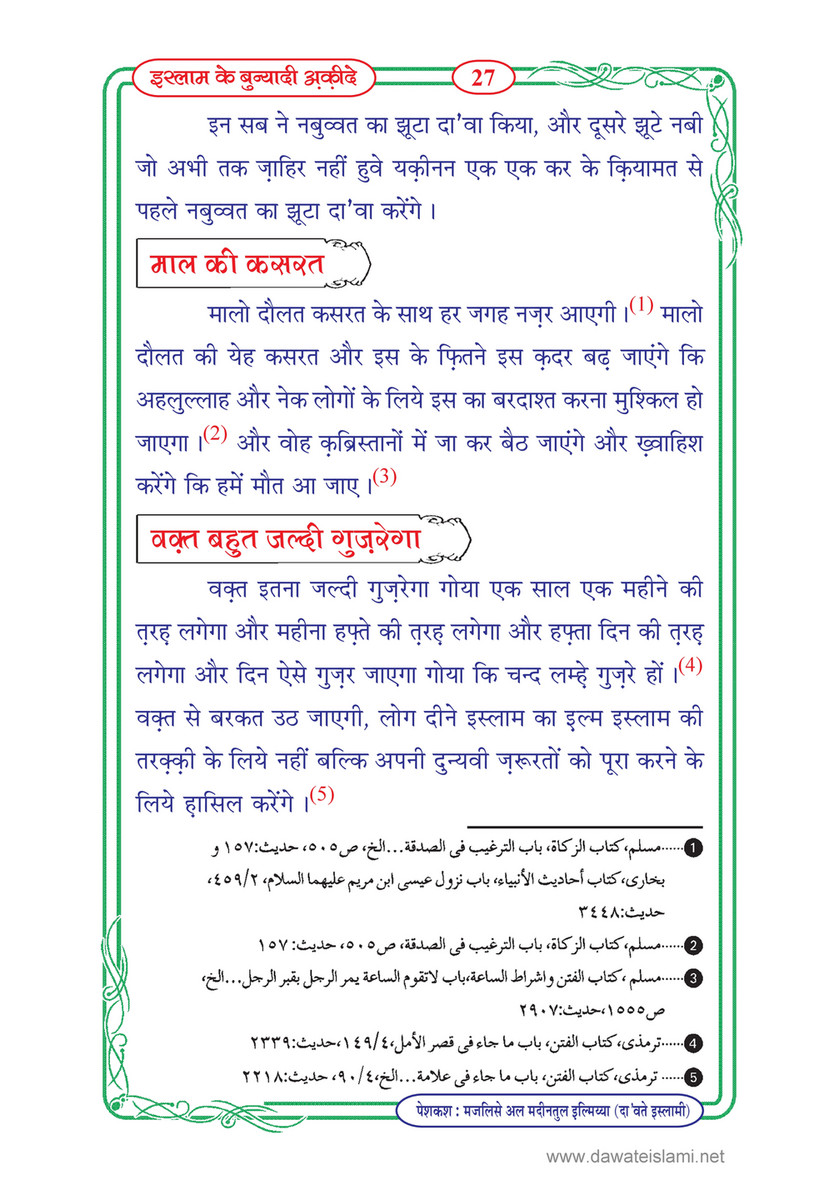 इस्लाम के बुन्यादी अ़क़ीदे
27
इन सब ने नबुव्वत का झूटा दा'वा किया, और दूसरे झूटे नबी
जो अभी तक ज़ाहिर नहीं हुवे यक़ीनन एक एक कर के क़ियामत से
पहले नबुव्वत का झूटा दा'वा करेंगे ।
माल की कसरत
मालो दौलत कसरत के साथ हर जगह नज़र आएगी ।(1) मालो
दौलत की येह कसरत और इस के फ़ितने इस क़दर बढ़ जाएंगे कि
अहलुल्लाह और नेक लोगों के लिये इस का बरदाश्त करना मुश्किल हो
जाएगा ।(2) और वोह क़ब्रिस्तानों में जा कर बैठ जाएंगे और ख़्वाहिश
करेंगे कि हमें मौत आ जाए ।(3)
वक़्त बहुत जल्दी गुज़रेगा
वक़्त इतना जल्दी गुज़रेगा गोया एक साल एक महीने की
त़रह़ लगेगा और महीना हफ़्ते की त़रह़ लगेगा और हफ़्ता दिन की त़रह़
लगेगा और दिन ऐसे गुज़र जाएगा गोया कि चन्द लम्ह़े गुज़रे हों ।(4)
वक़्त से बरकत उठ जाएगी, लोग दीने इस्लाम का इ़ल्म इस्लाम की
तरक़्क़ी के लिये नहीं बल्कि अपनी दुन्यवी ज़रूरतों को पूरा करने के
लिये ह़ासिल करेंगे ।(5)
1......مسلم،كتاب الزكاة، باب الترغيب فى الصدقة...الخ، ص٥٠٥، حديث:١٥٧ و
بخارى،كتاب أحاديث الأنبياء، باب نزول عيسى ابن مريم عليهما السلام، ٤٥٩/٢،
حديث:٣٤٤٨
2......مسلم،كتاب الزكاة، باب الترغيب فى الصدقة، ص٥٠٥، حديث: ١٥٧
3......مسلم ،كتاب الفتن واشراط الساعة،باب لاتقوم الساعة يمر الرجل بقبر الرجل...الخ،
ص١٥٥٥،حديث:٢٩٠٧
4......ترمذى،كتاب الفتن، باب ما جاء فى قصر الأمل،١٤٩/٤،حديث:٢٣٣٩
5...... ترمذى،كتاب الفتن، باب ما جاء فى علامة...الخ،٩٠/٤، حديث:٢٢١٨
पेशकश : मजलिसे अल मदीनतुल इ़ल्मिय्या (दा'वते इस्लामी)
www.dawateislami.net